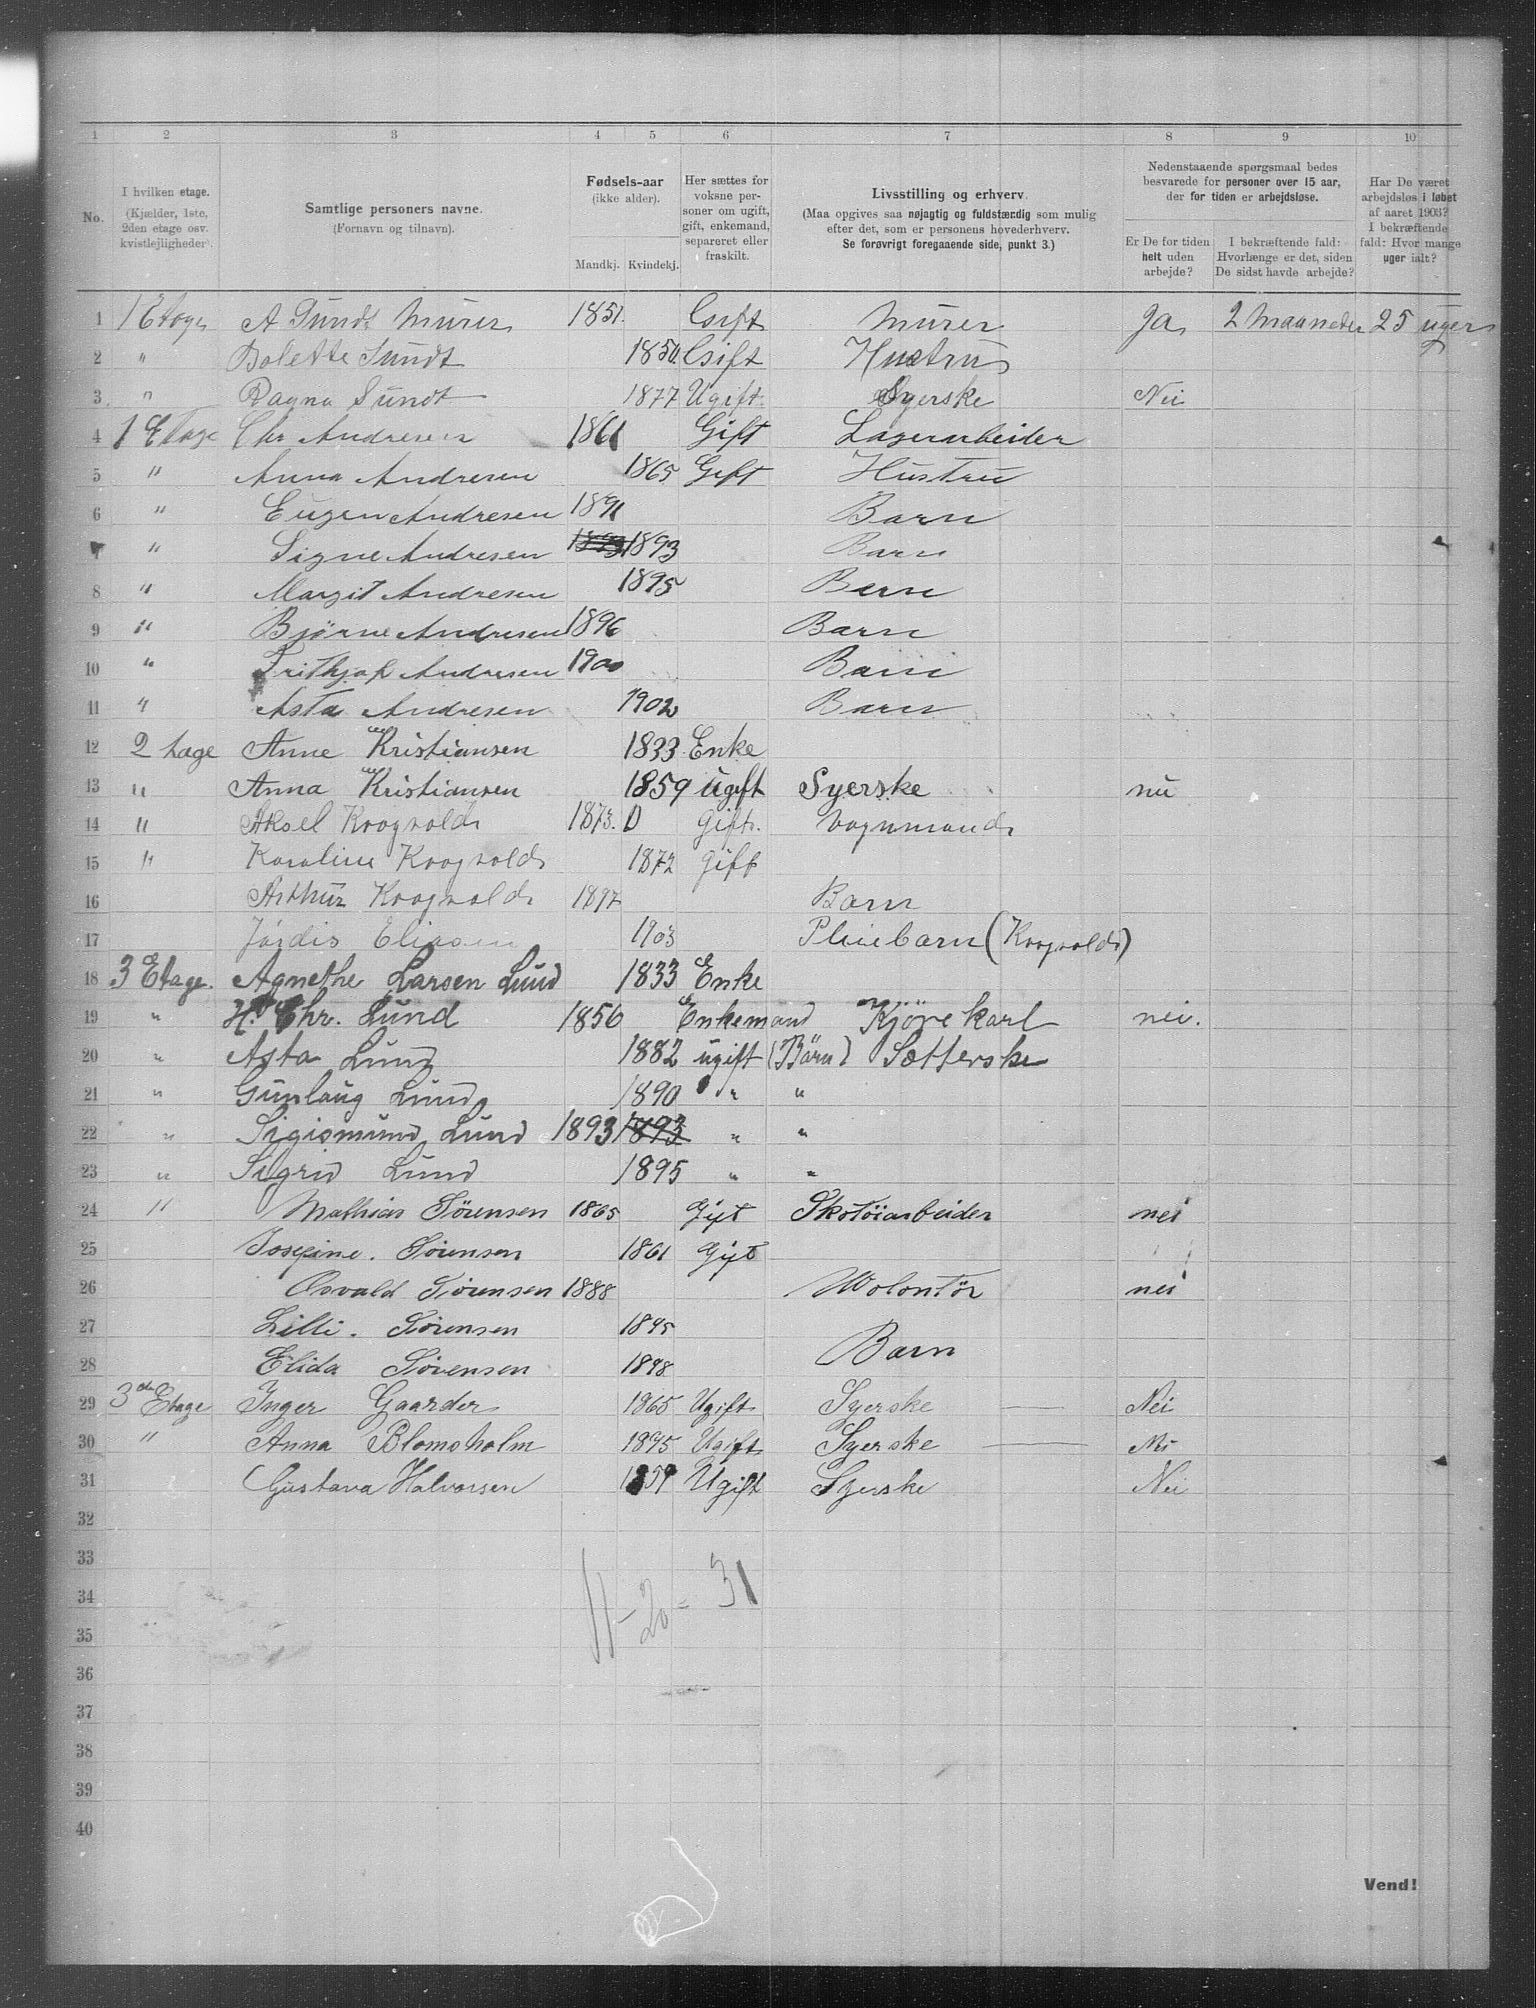 1 2 3 4 5 6 7 8 9 10
No.
I hvilken etage.
(Kjælder, 1ste,
2den etage osv.
kvistlejligheder).
Samtlige personers navne.
(Fornavn og tilnavn).
Fødsels-aar
(ikke alder).
Mandkj. Kvindekj.
Her sættes for
voksne per-
soner om ugift,
gift, enkemand,
separeret eller
fraskilt.
Livsstilling og erhverv.
(Maa opgives saa nøjagtig og fuldstændig som mulig
efter det, som er personens hovederhverv.
Se forøvrigt foregaaende side, punkt 3.)
Nedenstaaende spørgsmaal bedes
besvarede for personer over 15 aar,
der for tiden er arbejdsløse.
Er De for tiden
helt uden
arbejde?
I bekræftende fald:
Hvorlænge er det, siden
De sidst havde arbejde?
Har De været
arbejdsløs i løbet
af aaret 1903?
I bekræftende
fald: Hvor mange
uger ialt?
1 1 Etage A Sundt Murer 1851. Gift Murer Ja 2 Maaneder 25 uger
2 " Bolette Sundt 1850. Gift Hustru
3 " Ragna Sundt 1877 Ugift. Syerske Nei
4 1 Etage Chr Andresen 1861 Gift Lagerarbeider
5 " Anna Andresen 1865 Gift Hustru
6 " Eugen Andresen 1891 Barn
7 " Signe Andresen 1893 1893 Barn
8 " Margit Andresen 1895 Barn
9 " Bjørne Andresen 1896 Barn
10 " Frithjof Andresen 1900 Barn
11 " Asta Andresen 1902 Barn
12 2 tage Anne Kristiansen 1833 Enke
13 " Anna Kristiansen 1859 ugift Syerske nei
14 " Aksel Krogvold 1873. D Gift. Vognmand
15 " Karoline Krogvold 1872 gift
16 Arthur Krogvold 1897 Barn
17 Jørdis Eliasen 1903 Pleiebarn (Krogvold)
18 3 Etage. Agnethe Larsen Lund 1833 Enke
19 " H. Chr. Lund 1856 Enkemand Kjørekarl nei.
20 " Asta Lund 1882 ugift (Barn) Sætterske
21 " Gunlaug Lund 1890 " "
22 " Sigismund Lund 1893 1893 " "
23 " Sigrid Lund 1895 " "
24 " Mathias Sørensen 1865 Gift Skotøiarbeider nei
25 Josefine. Sørensen 1861 Gift
26 Osvald Sørensen 1888 Wolontør nei
27 Lilli. Sørensen 1895
28 Elida Sørensen 1898 Barn
29 3de Etage Inger Gaarder 1865 Ugift Syerske — Nei
30 " Anna Blomsholm 1895 Ugift Syerske — Nei
31 Gustava Halvorsen 1859 Ugift Syerske Nei
32
33
34 11 - 20 = 31
35
36
37
38
39
40
Vend!